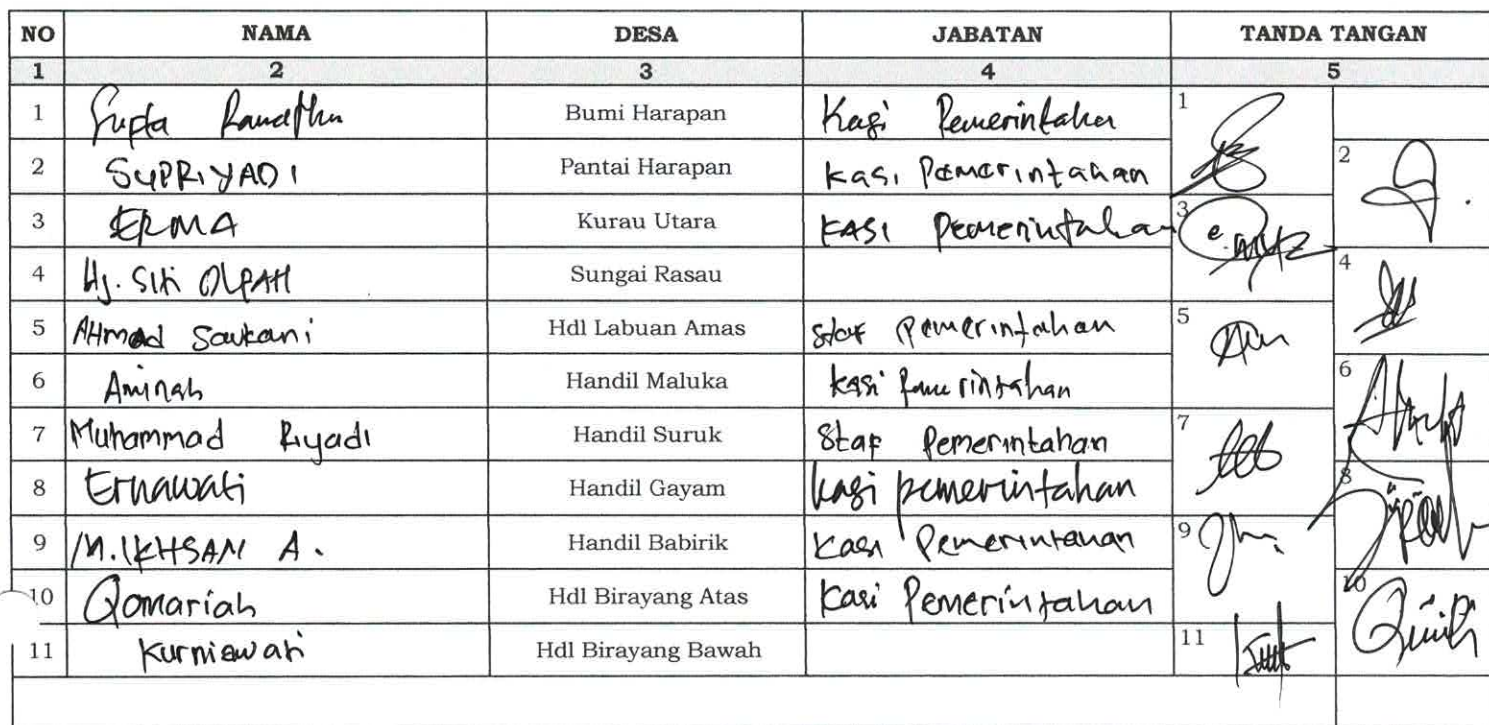 NO NAMA DESA JABATAN TANDA TANGAN
1 2 3 4 5
1 Bumi Harapan Kasi Pemerintahan 1
2 SUPRIYADI Pantai Harapan Kasi Pemerintahan 2
3 ERMA Kurau Utara KASI Pemerintahan 3
4 Hj. Siti OLPAH Sungai Rasau 4
5 AHmad Saukani Hdl Labuan Amas Staf Pemerintahan 5
6 Aminah Handil Maluka Kasi Pemerintahan 6
7 Muhammad Riyadi Handil Suruk Stap Pemerintahan 7
8 Ernawati Handil Gayam Kasi pemerintahan 8
9 M. IKHSAN A. Handil Babirik Kasi Pemerintahan 9
10 Qomariah Hdl Birayang Atas Kasi Pemerintahan 10
11 Kurniawati Hdl Birayang Bawah 11